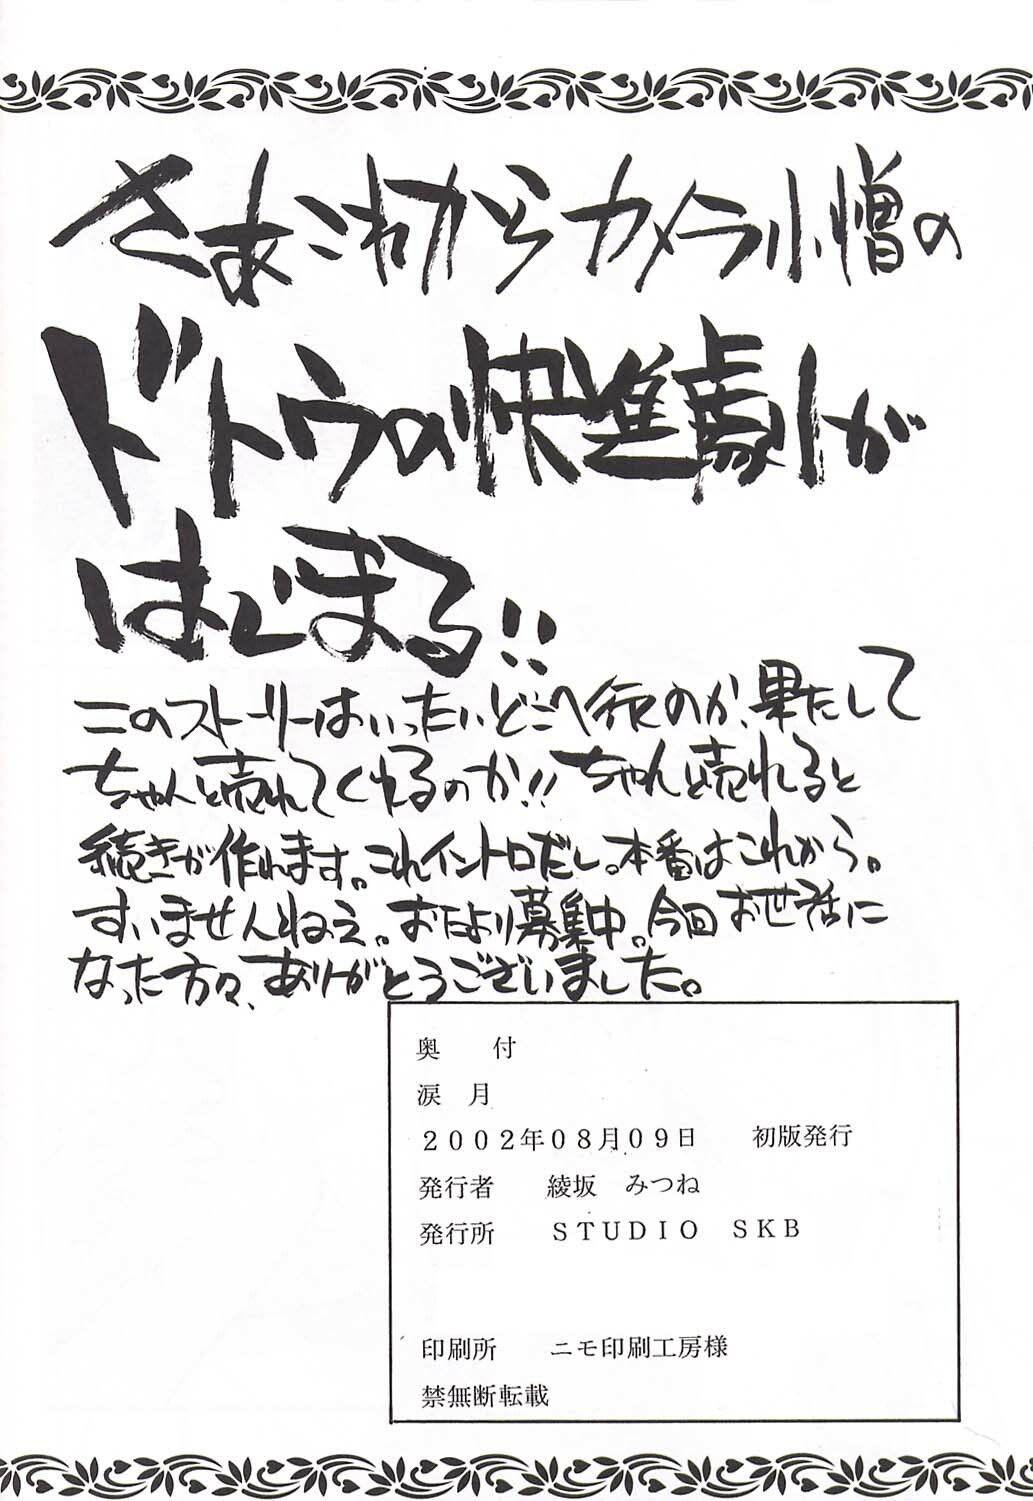 さあこれからカメラ小憎の
ドトウの快進劇が
はじまる!!
このストーリーはいったいどこへ行くのか、果たして
ちゃんと売れてくれるのか!! ちゃんと売れると
続きが作れます。これイントロだし。本番はこれから。
すいませんねえ。おたより募集中。今回お世話に
なった方々、ありがとうございました。
奥　付
涙　月
2002年08月09日　初版発行
発行者　綾坂　みつね
発行所　STUDIO　SKB
印刷所　ニモ印刷工房様
禁無断転載